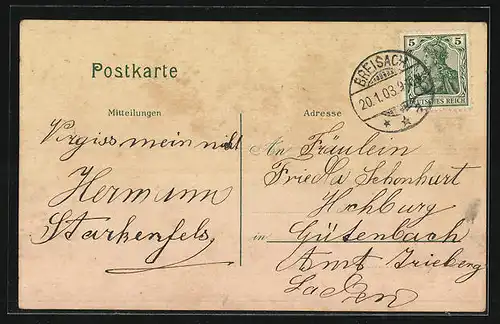 Postkarte
Mitteilungen
Vergiss mein nicht
Hermann
Starkenfels
Adresse
An Fräulein
Frieda Schonhurt
Hochburg
in Gütenbach
Amt Trieberg
Baden
BREISACH
20.1.03.9
5 5
DEUTSCHES REICH